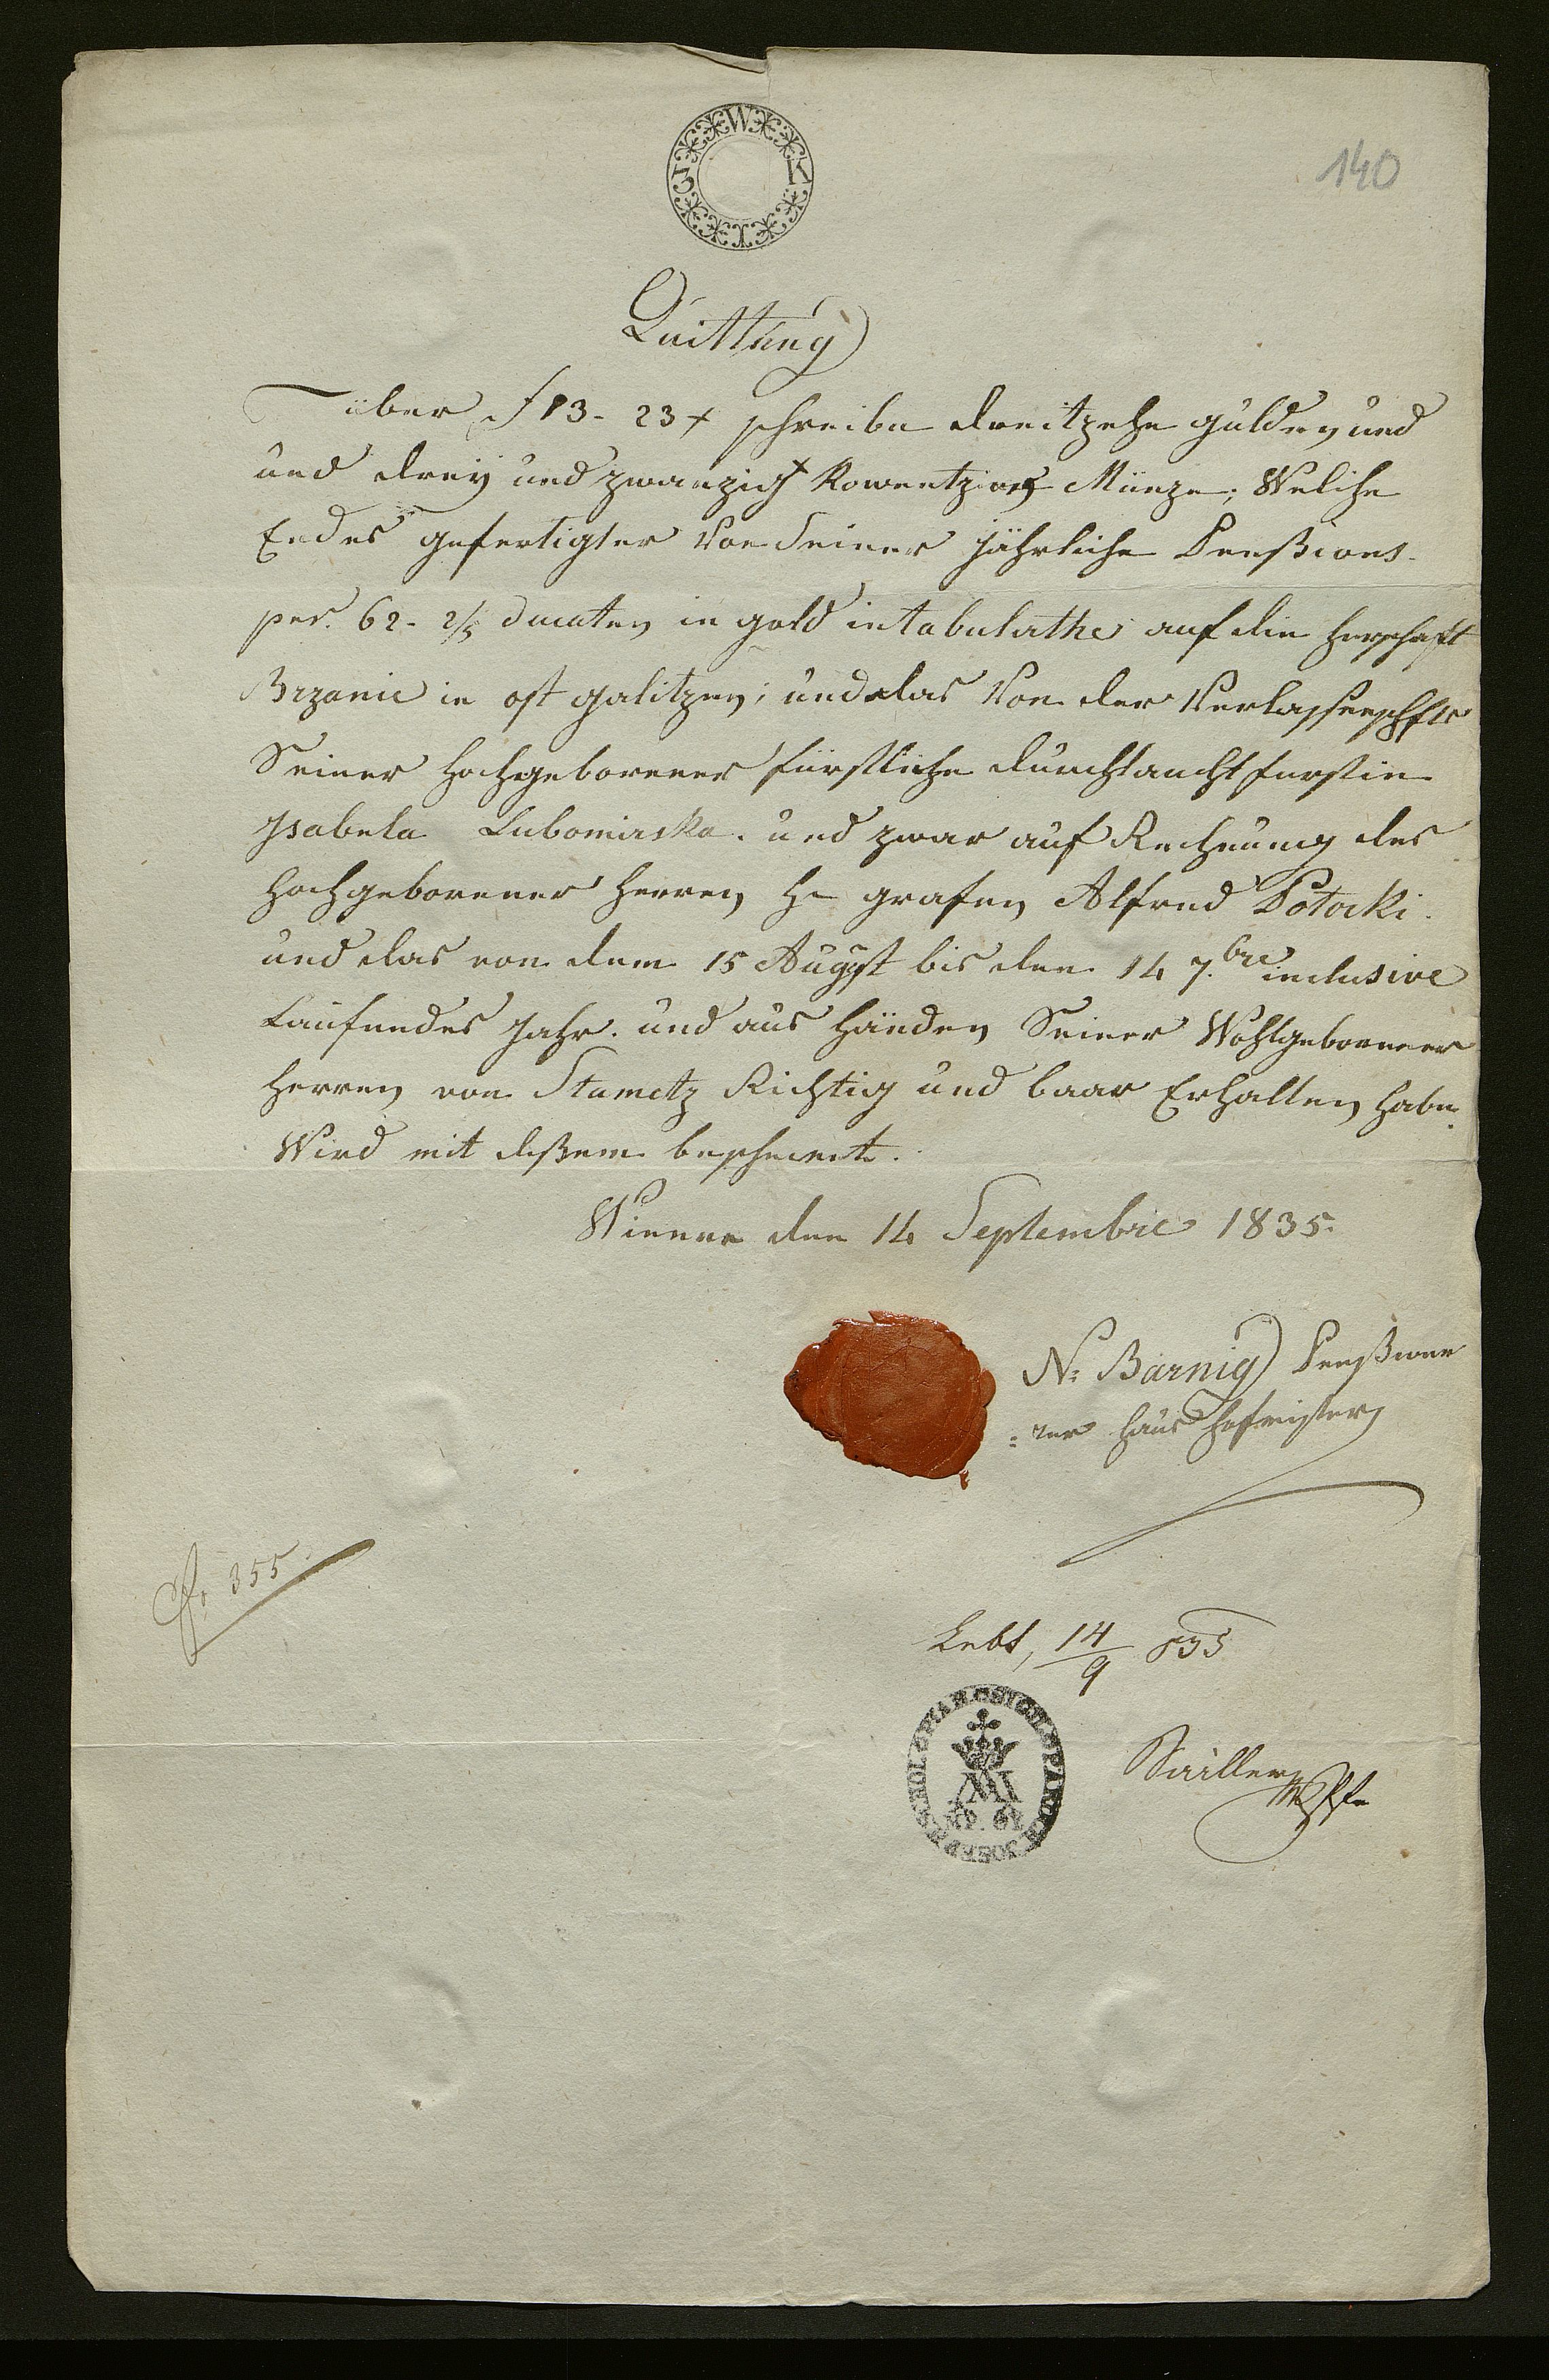 140
W K I G
Quittung
über f 13 - 23 x schreibe dreitzehn gulden und
und dreÿ und zwanzig x Kowentzions Münze; Welche
Endes gefertigter Von Seiner jährliche Penßions
per. 62 - 2/5 ducaten in gold intabulirthe auf die herschaft
Brzanie in ost galitzien; und das Von der Verlassenschft
Seiner hochgeborener fürstliche durchlaucht furstin
Isabela Lubomirska. und zwar auf Rechnung des
hochgeborener herren H. grafen Alfred Potocki.
und das von dem 15 August bis den 14 7.bre inclusive
laufendes Jahr. und aus händen Seiner Wohlgeborener
herren von Stametz Richtig und baar Erhalten habe.
Wird mit dißem bescheint.
Wienne den 14 Septembre 1835.
N: Barnig Penßione
=rer haus hofmister
355.
Lebt, 14/9 835
SIGIL PAROCH
M
Sailler